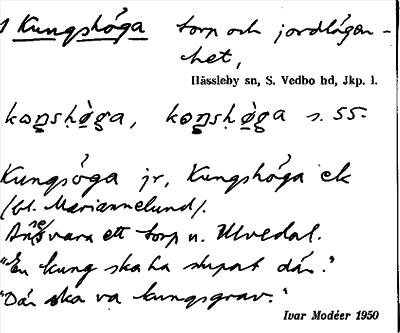 1 Kungshöga torp och jordlägen-
het,
Hässleby sn, S. Vedbo hd, Jkp. l.
koŋshø̀ga, koŋshø̀ga s. 55.
Kungsöga jr, Kungshöga ek
(bl. Mariannelund).
Anses vara ett torp u. Ulvedal.
"En kung ska ha stupat där."
"Där ska va kungsgrav."
Ivar Modéer 1950